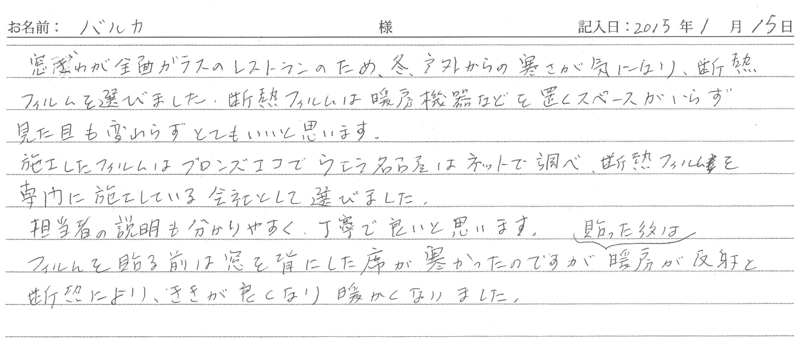 お名前： バルカ 様 記入日：2015年1月15日
窓ぎわが全面ガラスのレストランのため、冬、戸外からの寒さが気になり、断熱
フィルムを選びました。断熱フィルムは暖房機器などを置くスペースがいらず
見た目も変わらずとてもいいと思います。
施工したフィルムはブロンズエコでウエラ名古屋はネットで調べ、断熱フィルムを
専門に施工している会社として選びました。
担当者の説明も分かりやすく、丁寧で良いと思います。 貼った後は
フィルムを貼る前は窓を背にした席が寒かったのですが暖房が反射と
断熱により、ききが良くなり暖かくなりました。